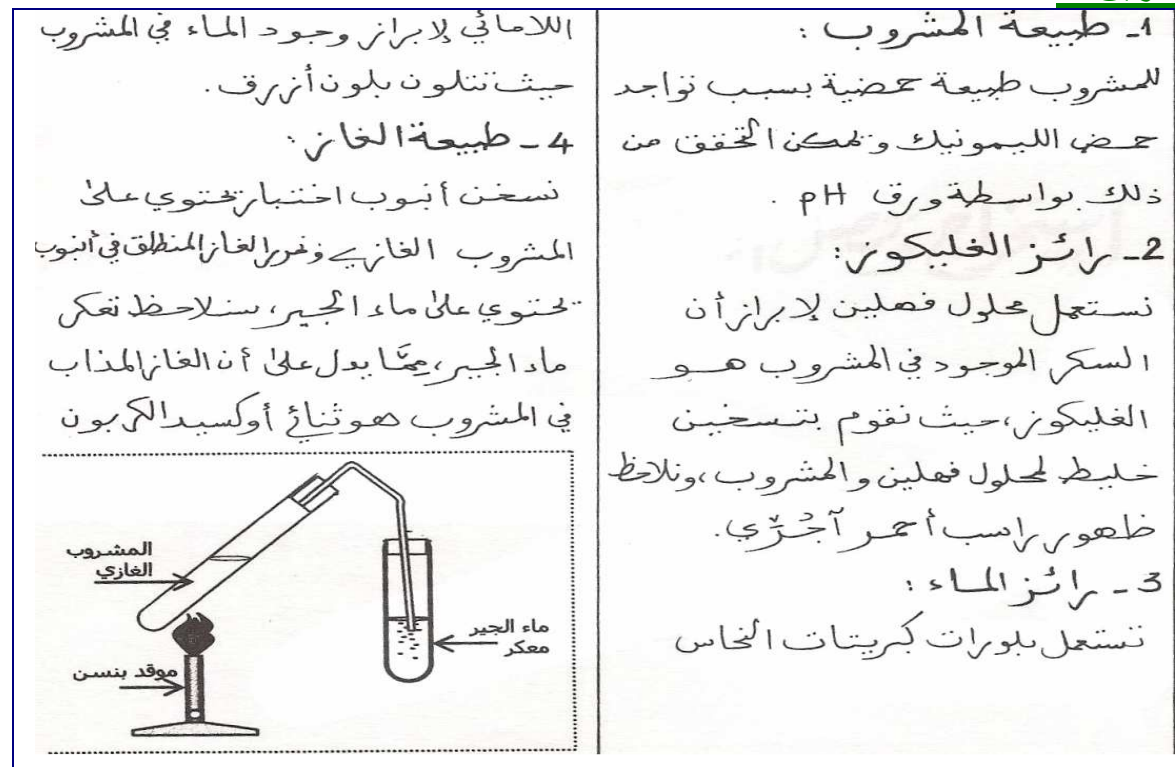 1- طبيعة المشروب :
للمشروب طبيعة حمضية بسبب تواجد
حمض الليمونيك ويمكن التحقق من
ذلك بواسطة ورق pH .
2- رائز الغليكوز:
نستعمل محلول فهلين لإبراز أن
السكر الموجود في المشروب هو
الغليكوز، حيث نقوم بتسخين
خليط لمحلول فهلين والمشروب، ونلاحظ
ظهور راسب أحمر آجُرّي.
3- رائز الماء :
تستعمل بلورات كبريتات النحاس
اللامائي لإبراز وجود الماء في المشروب
حيث تتلون بلون أزرق.
4- طبيعة الغاز:
نسخن أنبوب اختبار يحتوي على
المشروب الغازي ونمرر الغاز المنطلق في أنبوب
يحتوي على ماء الجير، سنلاحظ تعكر
ماء الجير، ممّا يدل على أن الغاز المذاب
في المشروب هو ثنائي أوكسيد الكربون
المشروب
الغازي
ماء الجير
معكر
موقد بنسن